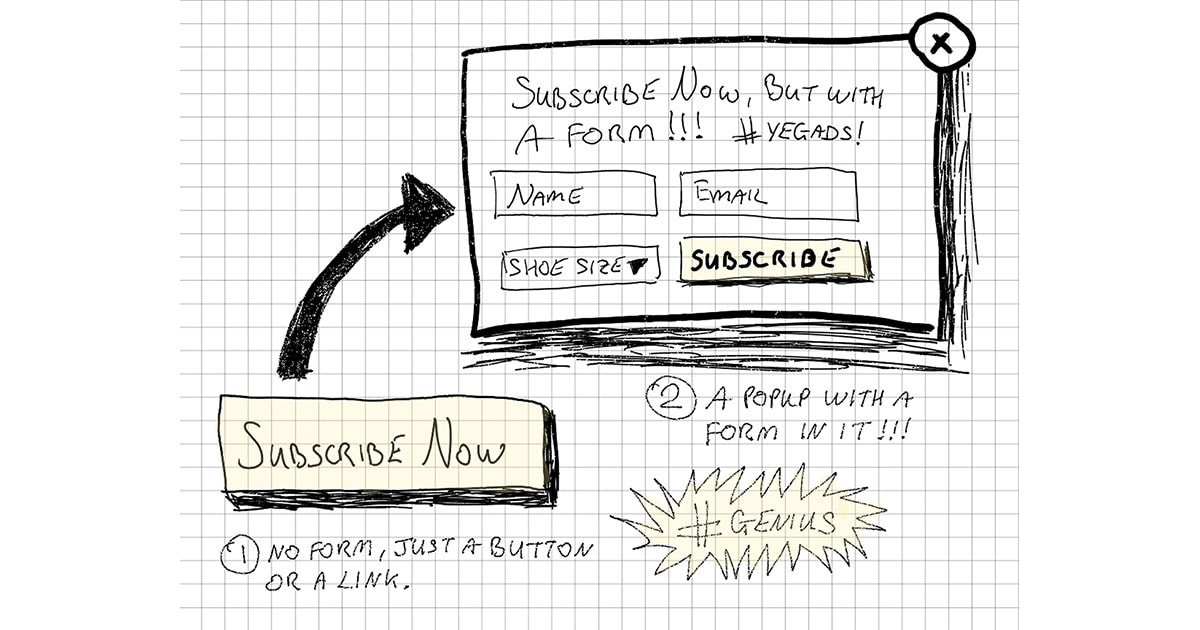 X
SUBSCRIBE NOW, BUT WITH
A FORM!!! #YEGADS!
NAME
EMAIL
SHOE SIZE▼
SUBSCRIBE
SUBSCRIBE NOW
1 NO FORM, JUST A BUTTON
OR A LINK.
2 A POPUP WITH A
FORM IN IT!!!
#GENIUS